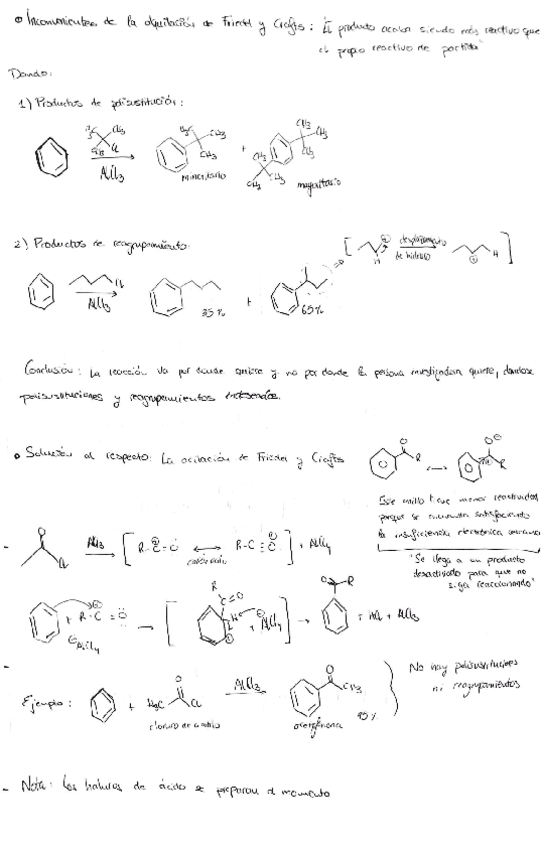 Inconvenientes de la alquilación de Friedel y Crafts: "El producto acaba siendo más reactivo que
el propio reactivo de partida"
Dando:
1) Productos de polisustitución:
CH3
Cl
AlCl3
CH3
CH3
minoritario
+
CH3
CH3
CH3
mayoritario
2) Productos de reagrupamiento:
desplazamiento
de hidruro
H
Cl
AlCl3
35%
+
65%
Conclusión: La reacción va por donde quiere y no por donde la persona investigadora quiere, dándose
polisustituciones y reagrupamientos
Solución al respecto: La acilación de Friedel y Crafts
Este anillo tiene menor reactividad
porque se encuentra satisfaciendo
la insuficiencia electrónica
"Se llega a un producto
desactivado para que no
siga reaccionando"
AlCl3
R-C=O
R-C≡O
+ AlCl4
+ R-C=O
AlCl4
+ AlCl4
+ HCl + AlCl3
Ejemplo:
+
H3C
Cl
AlCl3
CH3
cloruro de
acetofenona
95%
No hay polisustituciones
ni reagrupamientos
- Nota: Los haluros de ácido se preparan al momento